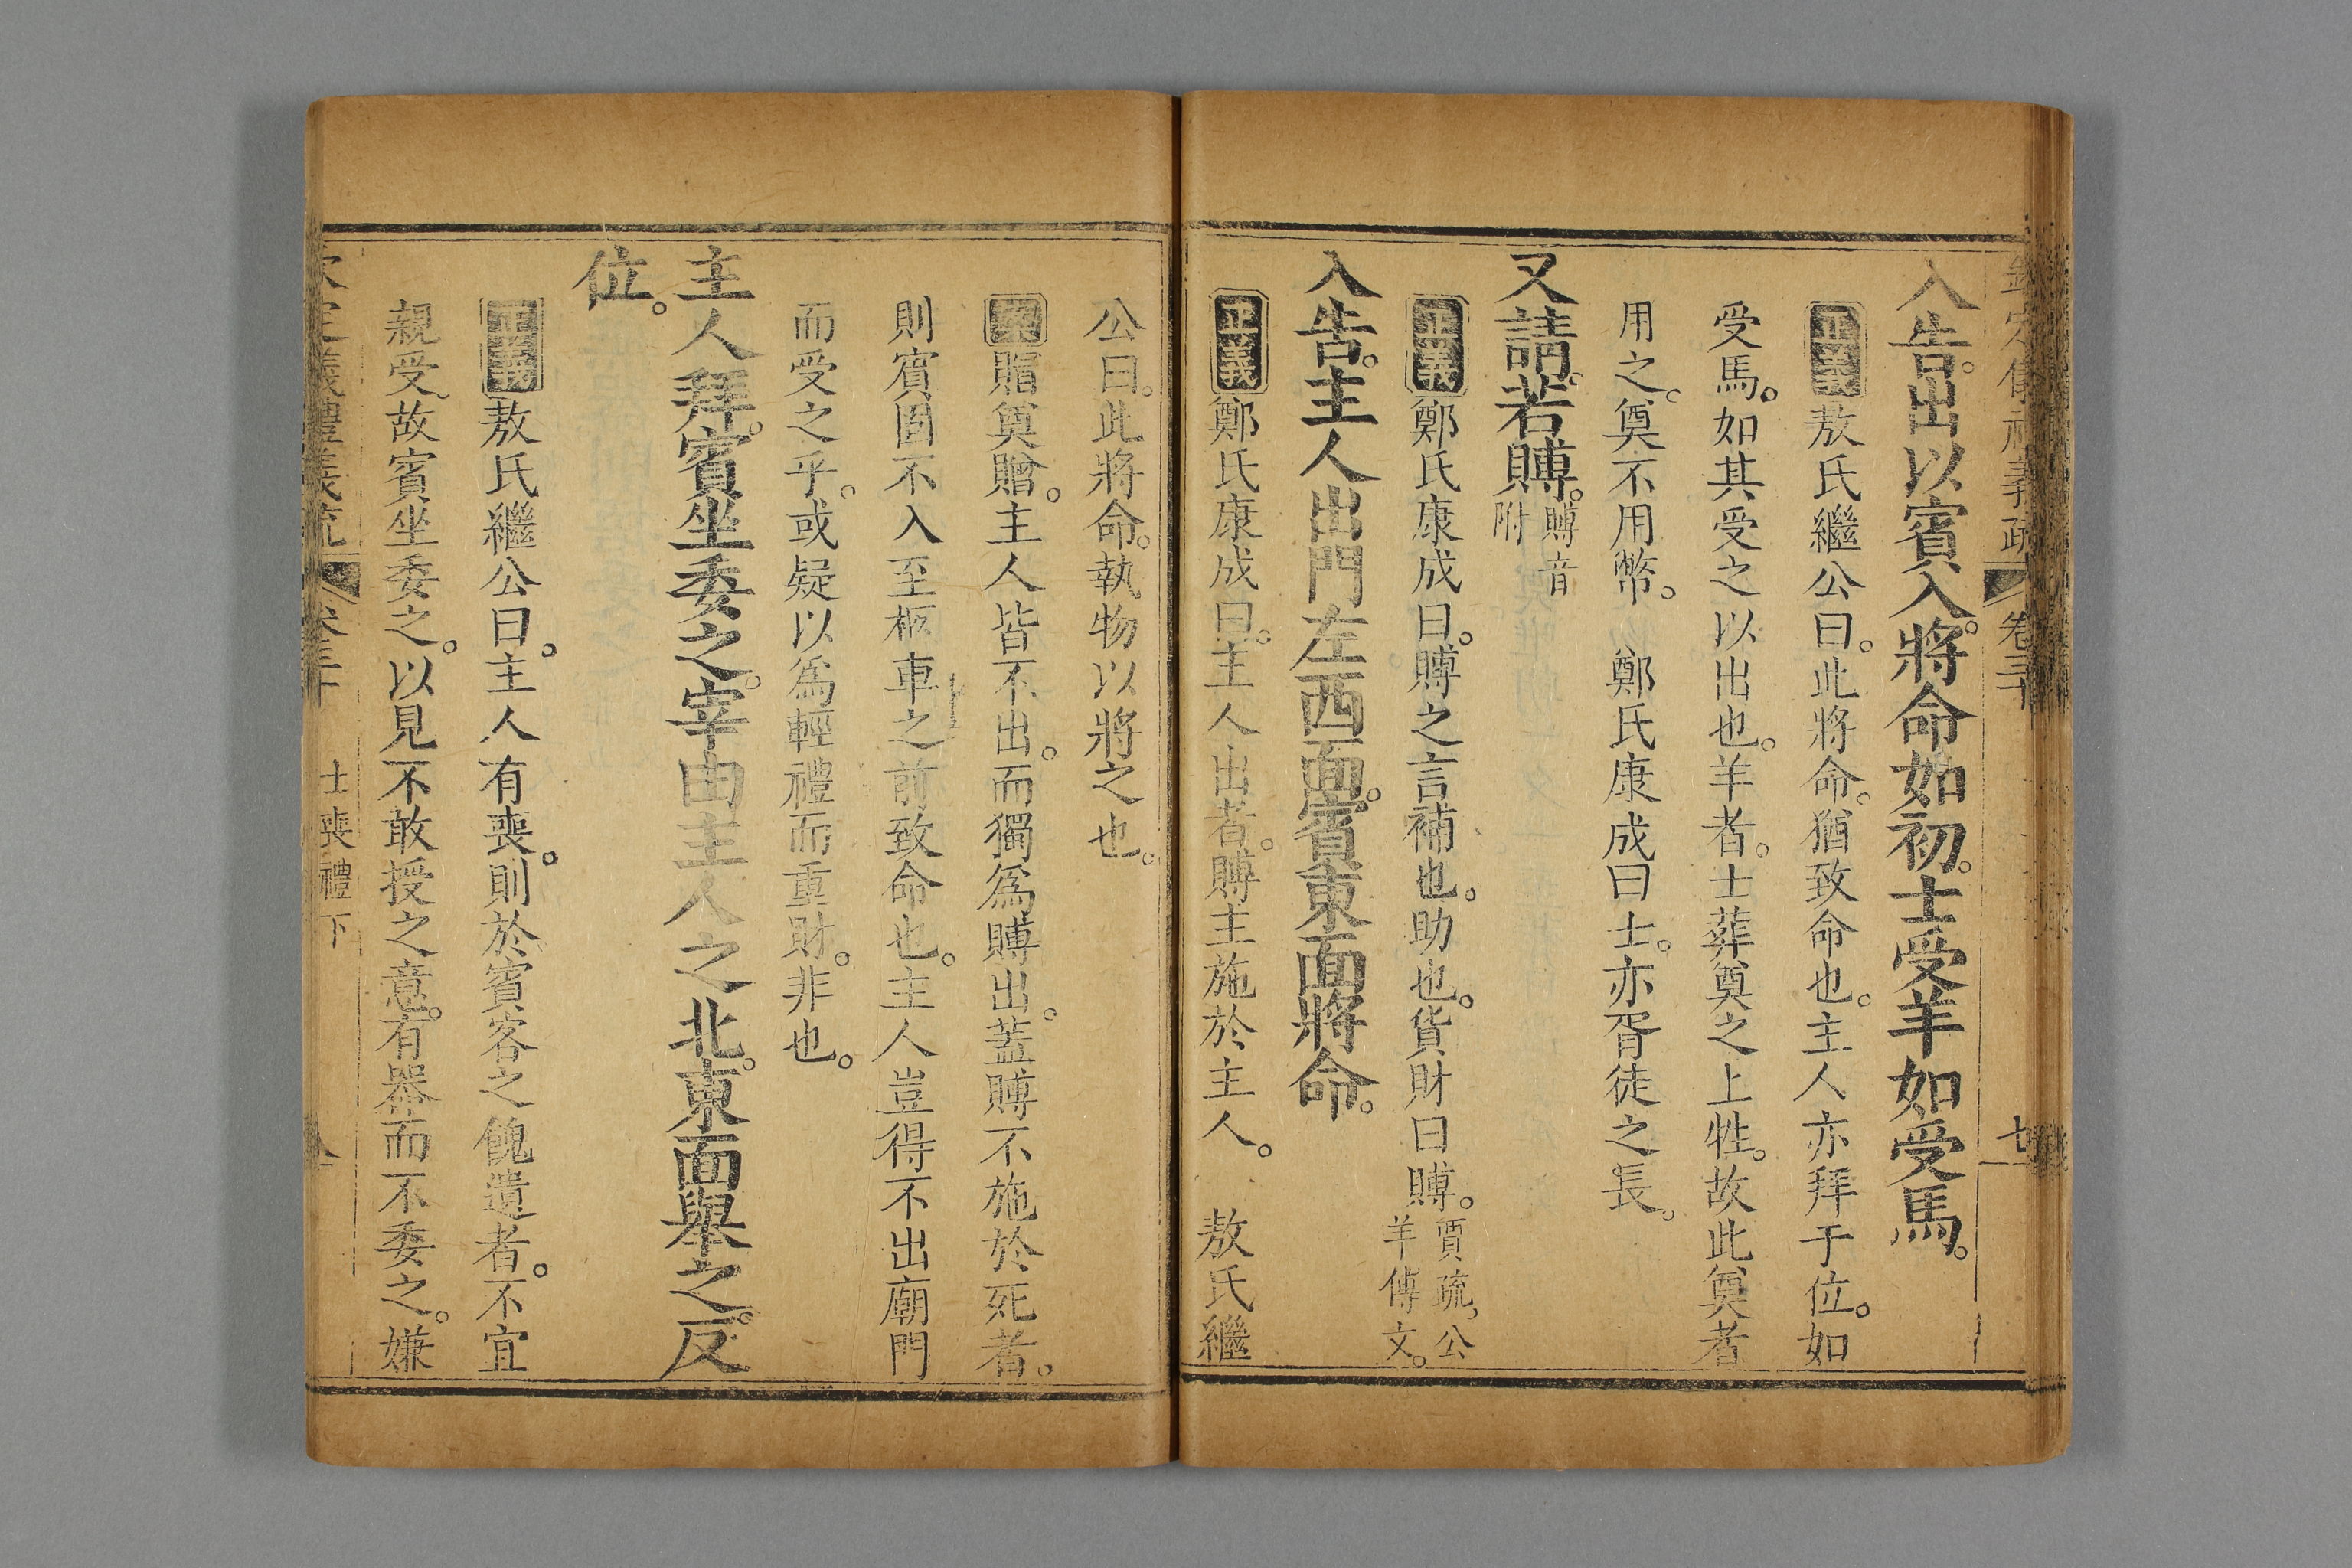 欽定儀禮義疏 卷三十 七
入告。出以賓入。將命如初。士受羊如受馬。
正義 敖氏繼公曰。此將命。猶致命也。主人亦拜于位。如
受馬。如其受之以出也。羊者。士葬奠之上牲。故此奠者
用之。奠不用幣。 鄭氏康成曰士。亦胥徒之長。
又請。若賻。賻音附
正義 鄭氏康成曰。賻之言補也。助也。貨財曰賻。賈疏,公羊傳文。
入告。主人出門左西面。賓東面將命。
正義 鄭氏康成曰。主人出者。賻主施於主人。 敖氏繼
公曰。此將命。執物以將之也。
案 賵奠贈。主人皆不出。而獨爲賻出。蓋賻不施於死者。
則賓固不入至柩車之前致命也。主人豈得不出廟門
而受之乎。或疑以爲輕禮而重財。非也。
主人拜。賓坐委之。宰由主人之北。東面舉之。反
位。
正義 敖氏繼公曰。主人有喪。則於賓客之餽遺者。不宜
親受。故賓坐委之。以見不敢授之意。有器而不委之。嫌
欽定儀禮義疏 卷三十 士喪禮下 八